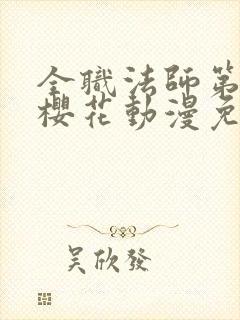 全職法師第
櫻花動漫免
吴欣發